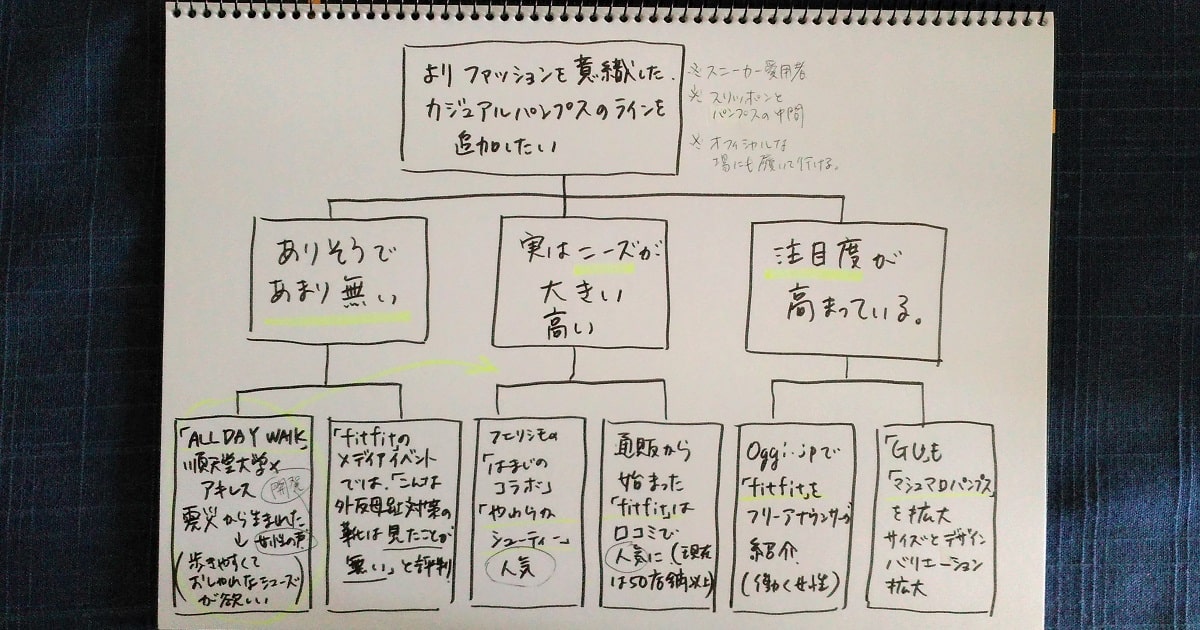 よりファッションを意識した
カジュアルパンプスのラインを
追加したい
※スニーカー愛用者
※スリッポンと
パンプスの中間
※オフィシャルな
場にも履いて行ける。
ありそうで
あまり無い
実はニーズが
大きい
高い
注目度が
高まっている。
「ALL DAY WALK」
順天堂大学×
アキレス 開発
震災から生まれた
↓ 女性の声
(歩きやすくて
おしゃれなシューズ
が欲しい)
「fitfit」の
メディアイベント
では、「こんな
外反母趾対策の
靴は見たことが
無い」と評判
フェリシモの
「はまじの
コラボ」
「やわらか
シューティー」
人気
通販から
始まった
「fitfit」は
口コミで
人気に(現在
は50店舗以上)
Oggi.jpで
「fitfit」を
フリーアナウンサーが
紹介
(働く女性)
「GU」も
「マシュマロパンプス」
を拡大
サイズとデザイン
バリエーション
拡大